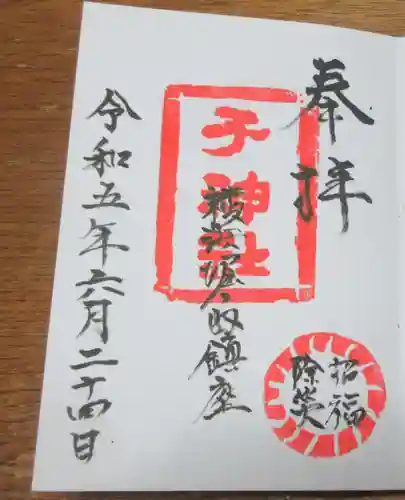 奉拝
子神社
横浜堀ノ内鎮座
招福
除災
令和五年六月二十四日